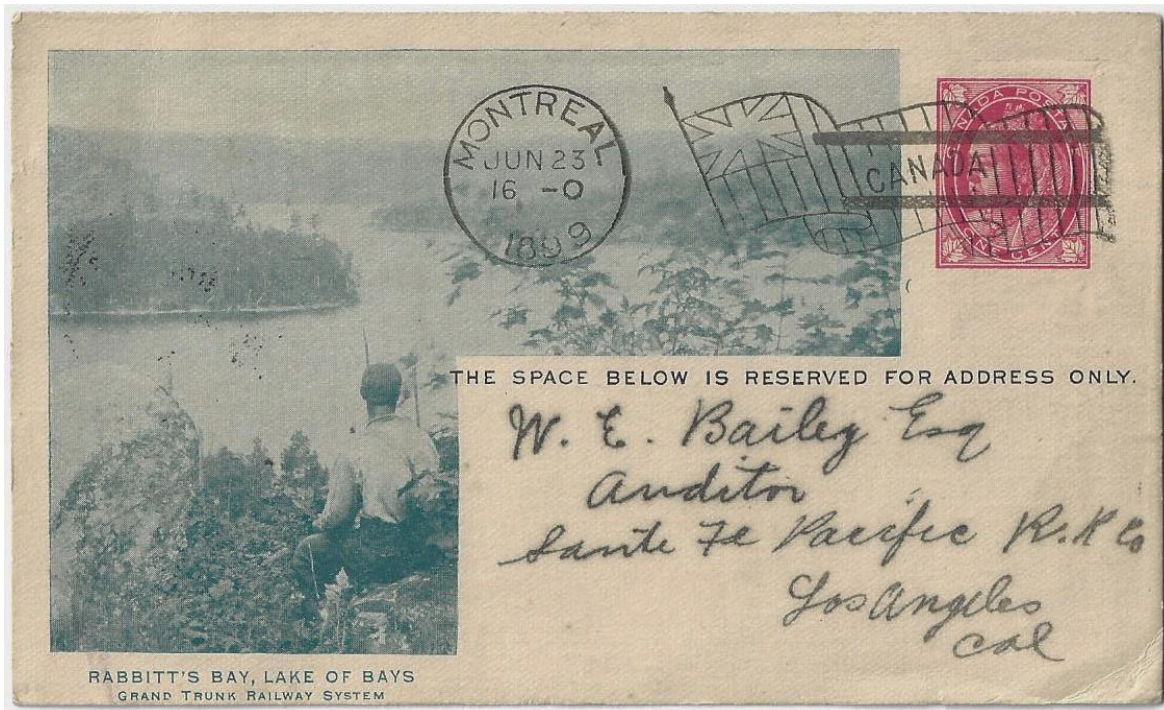 MONTREAL
JUN 23
16 -0
1899
CANADA
CANADA POSTAGE
ONE CENT
THE SPACE BELOW IS RESERVED FOR ADDRESS ONLY.
W. E. Bailey Esq
Auditor
Sante Fe Pacific R.R Co
Los Angeles
Cal
RABBITT'S BAY, LAKE OF BAYS
GRAND TRUNK RAILWAY SYSTEM